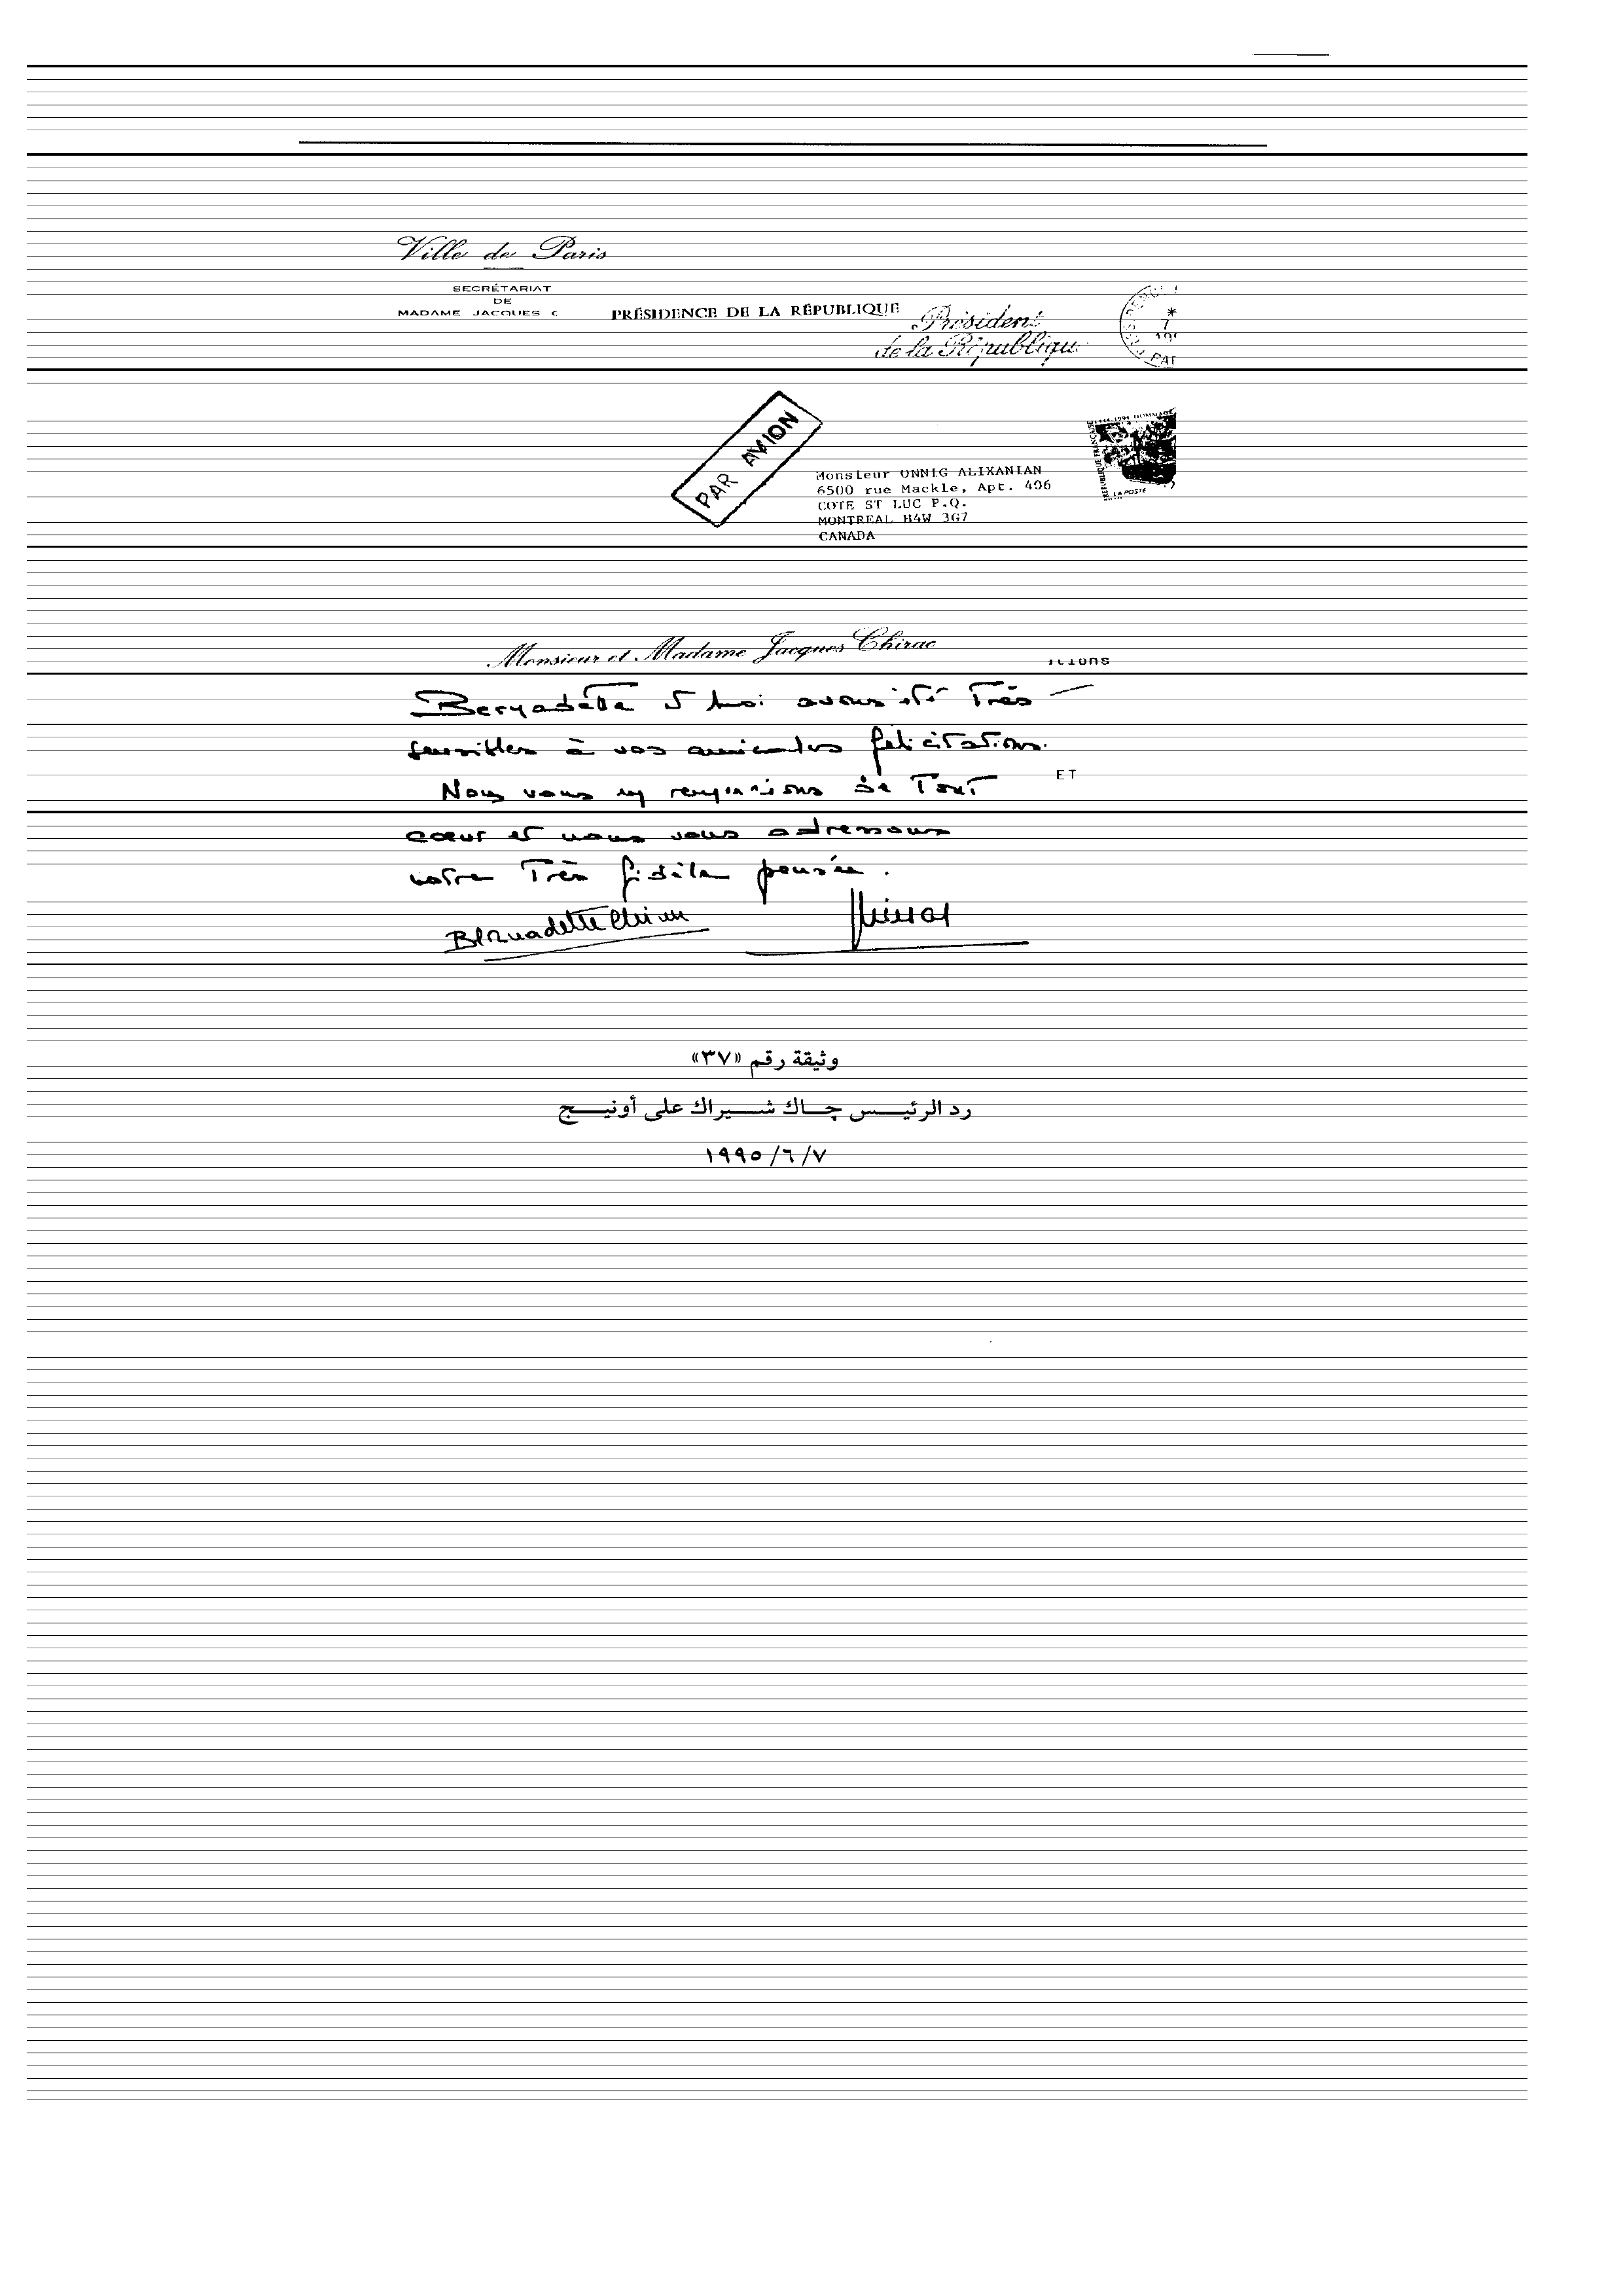 Ville de Paris
SECRÉTARIAT
DE
MADAME JACQUES C
PRÉSIDENCE DE LA RÉPUBLIQUE
Président
de la République
PAR AVION
Monsieur ONNIG ALIXANIAN
6500 rue Mackle, Apt. 406
COTE ST LUC P.Q.
MONTREAL H4W 3G7
CANADA
LA POSTE
Monsieur et Madame Jacques Chirac
Bernadette et moi avons été Très
sensibles à vos amicales félicitations.
Nous vous en remercions de Tout
ET
cœur et nous vous adressons
notre Très fidèle pensée.
Bernadette Chirac
وثيقة رقم «٣٧»
رد الرئيس چاك شيراك على أونيج
١٩٩٥/٦/٧